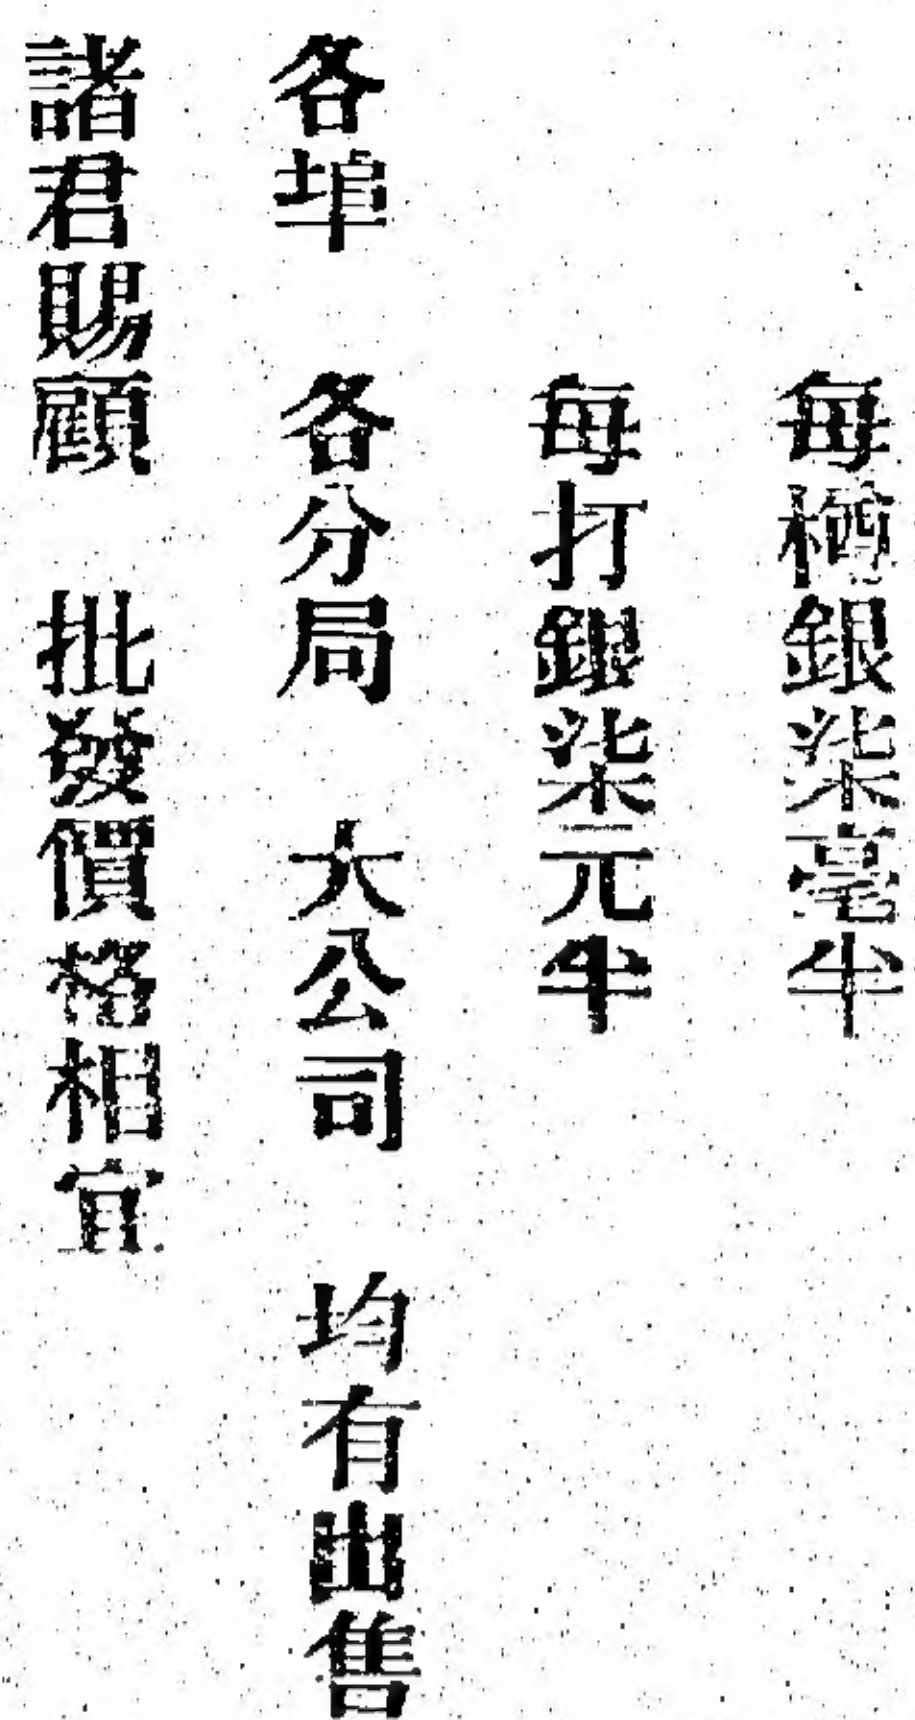 每樽銀柒毫半
每打銀柒元半
各埠 各分局 大公司 均有出售
諸君賜顧 批發價格相宜